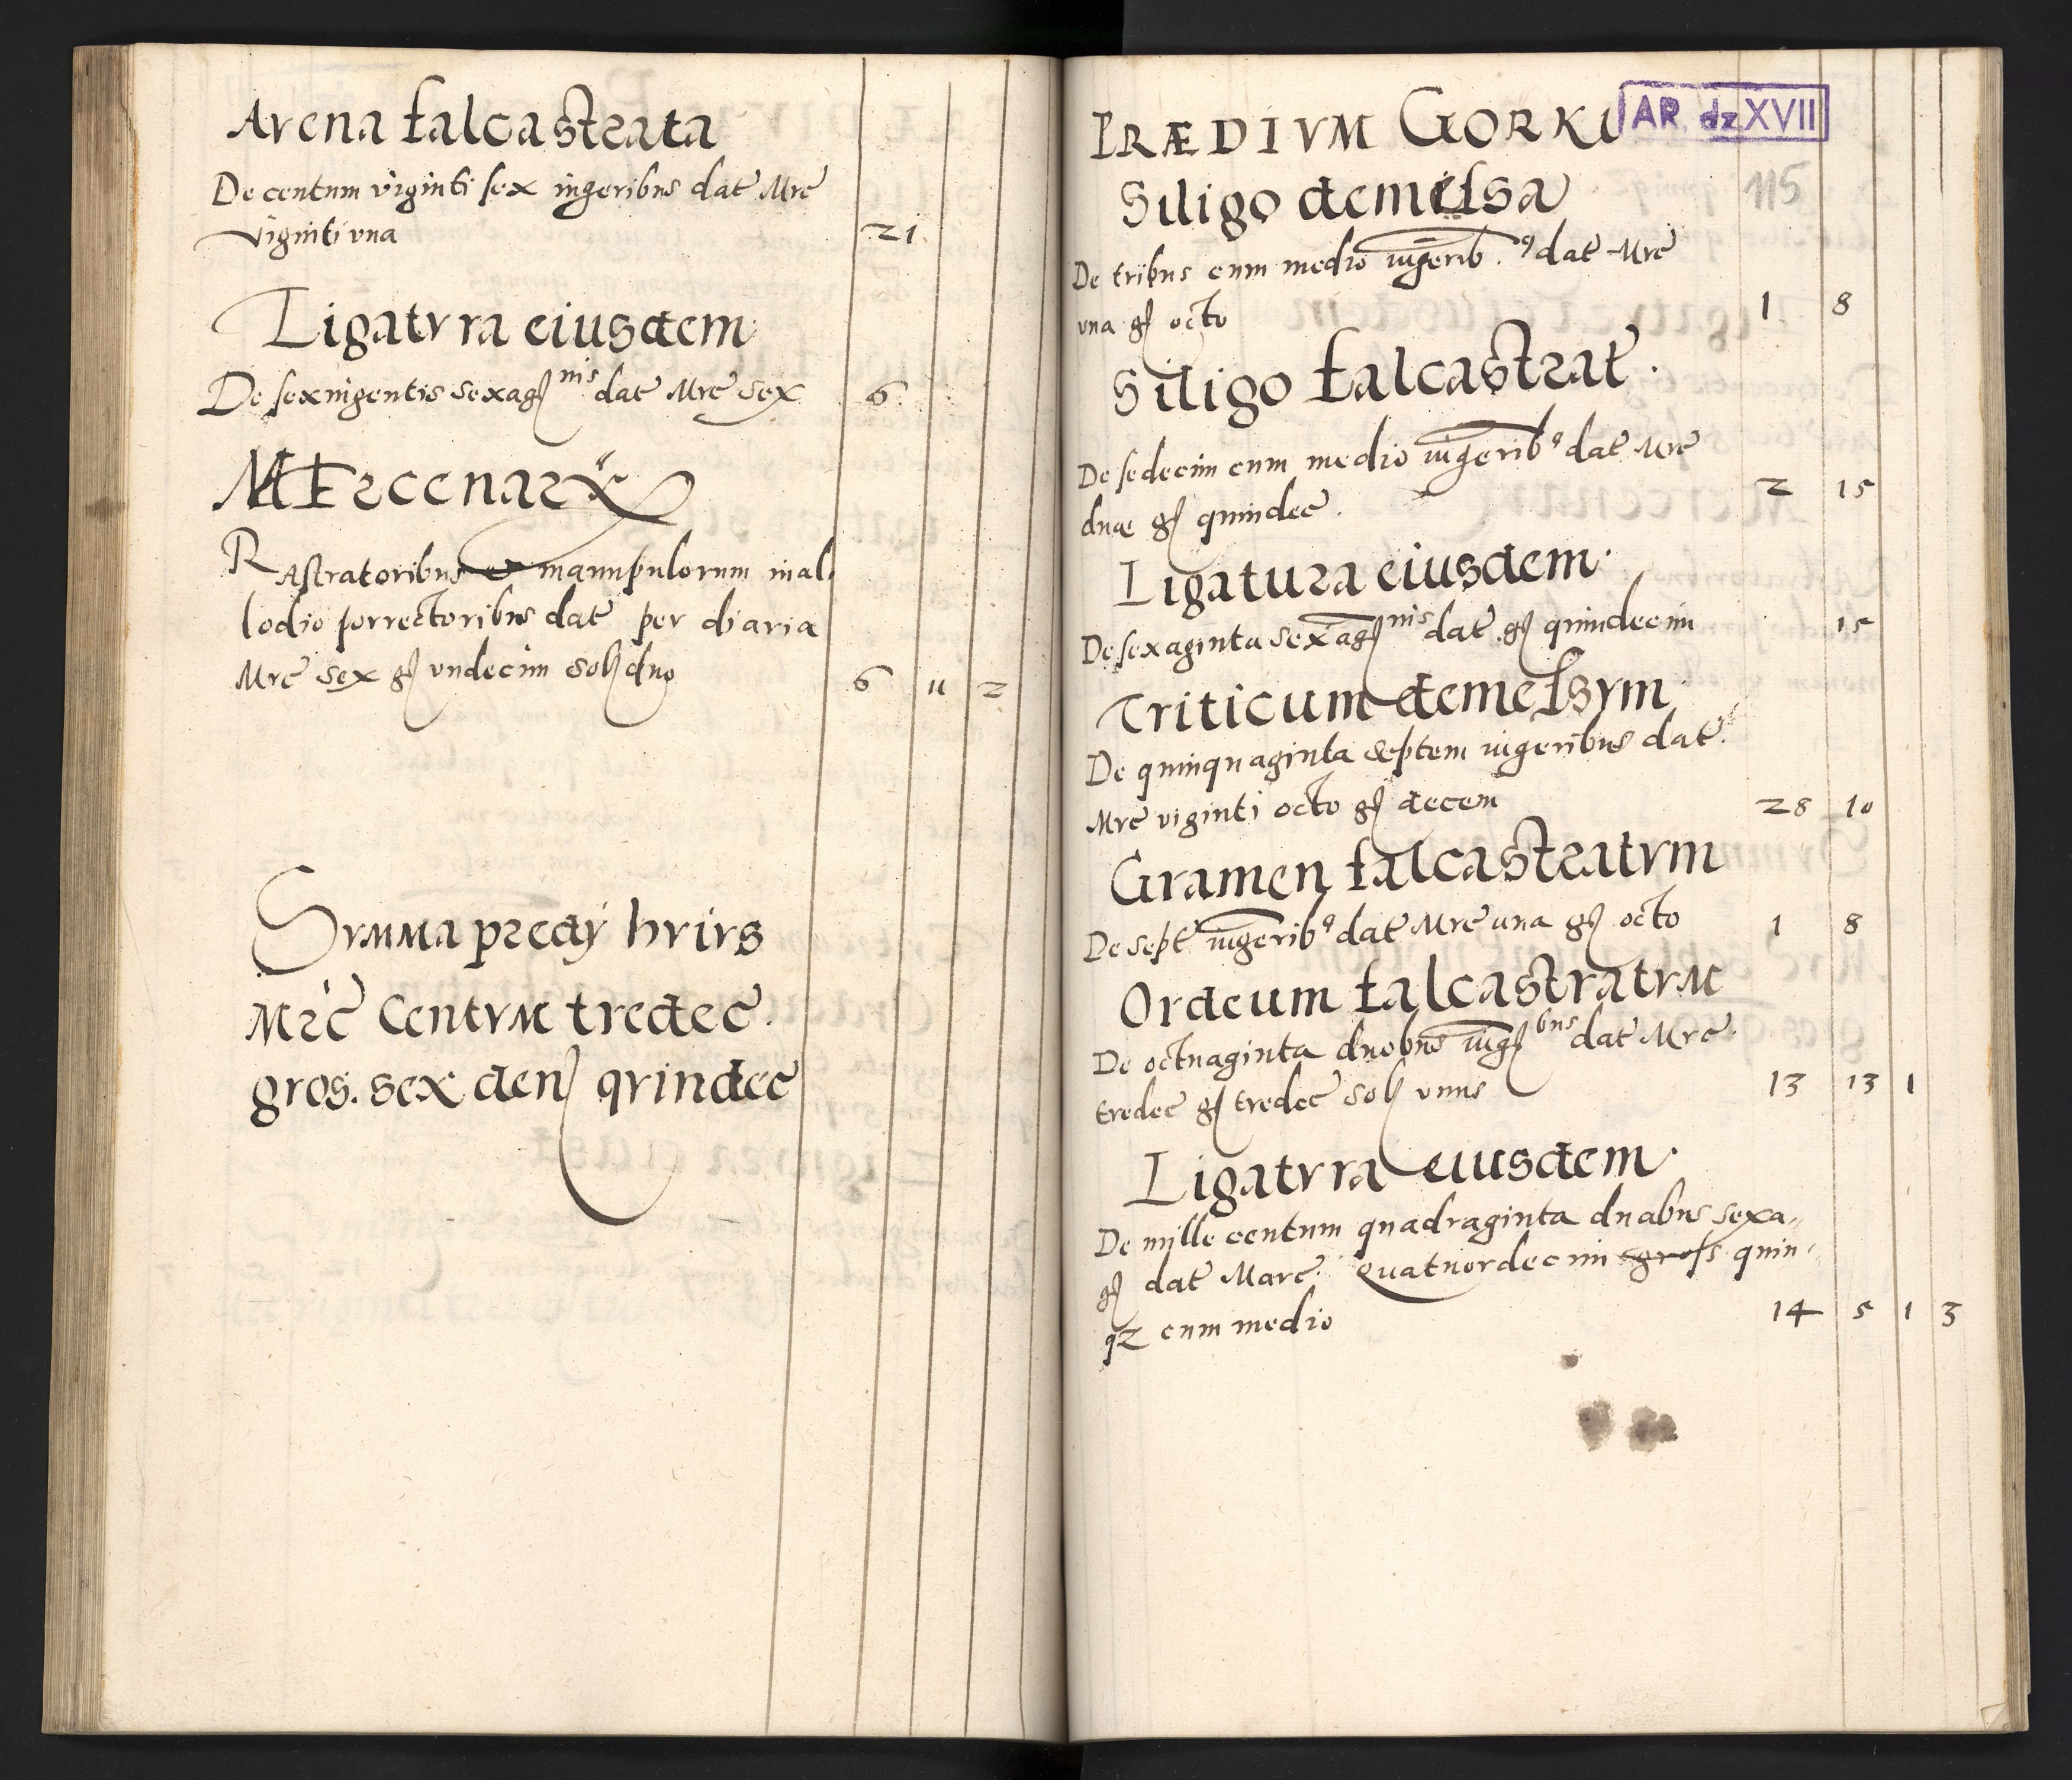 Arena falcastrata
De centum viginti sex iugeribus dat Mrc
viginti vna 21
Ligatvra eiusdem
De sexingentis sexag nis dat Mrc sex 6
Mercenarÿ
Rastratoribus et manipulorum in al
lodio porrectoribus dat per diaria
Mrc sex g undecim sol duo 6 11 2
Svmma predÿ hvivs
Mrc Centvm tredec.
gros. sex den qvindec
PRÆDIVM GORKI
AR dz XVII
115
Siligo demessa
De tribus cum medio iugerib9 dat Mrc
una g octo 1 8
Siligo falcastrat.
De sedecim cum medio iugerib9 dat Mrc
duæ g quindec. 2 15
Ligatura eiusdem.
De sexaginta sexag nis dat g quindecim 15
Triticum demessvm
De quinquaginta septem iugeribus dat
Mrc viginti octo g decem 28 10
Gramen falcastratvm
De sept iugerib9 dat Mrc una g octo 1 8
Ordeum falcastratvm
De octuaginta duobus iug bus dat Mrc
tredec g tredec sol unus 13 13 1
Ligatvra eiusdem.
De mille centum quadraginta duabus sexa„
g dat Marc. Quatuordecim gross quin„
qz cum medio 14 5 1 3